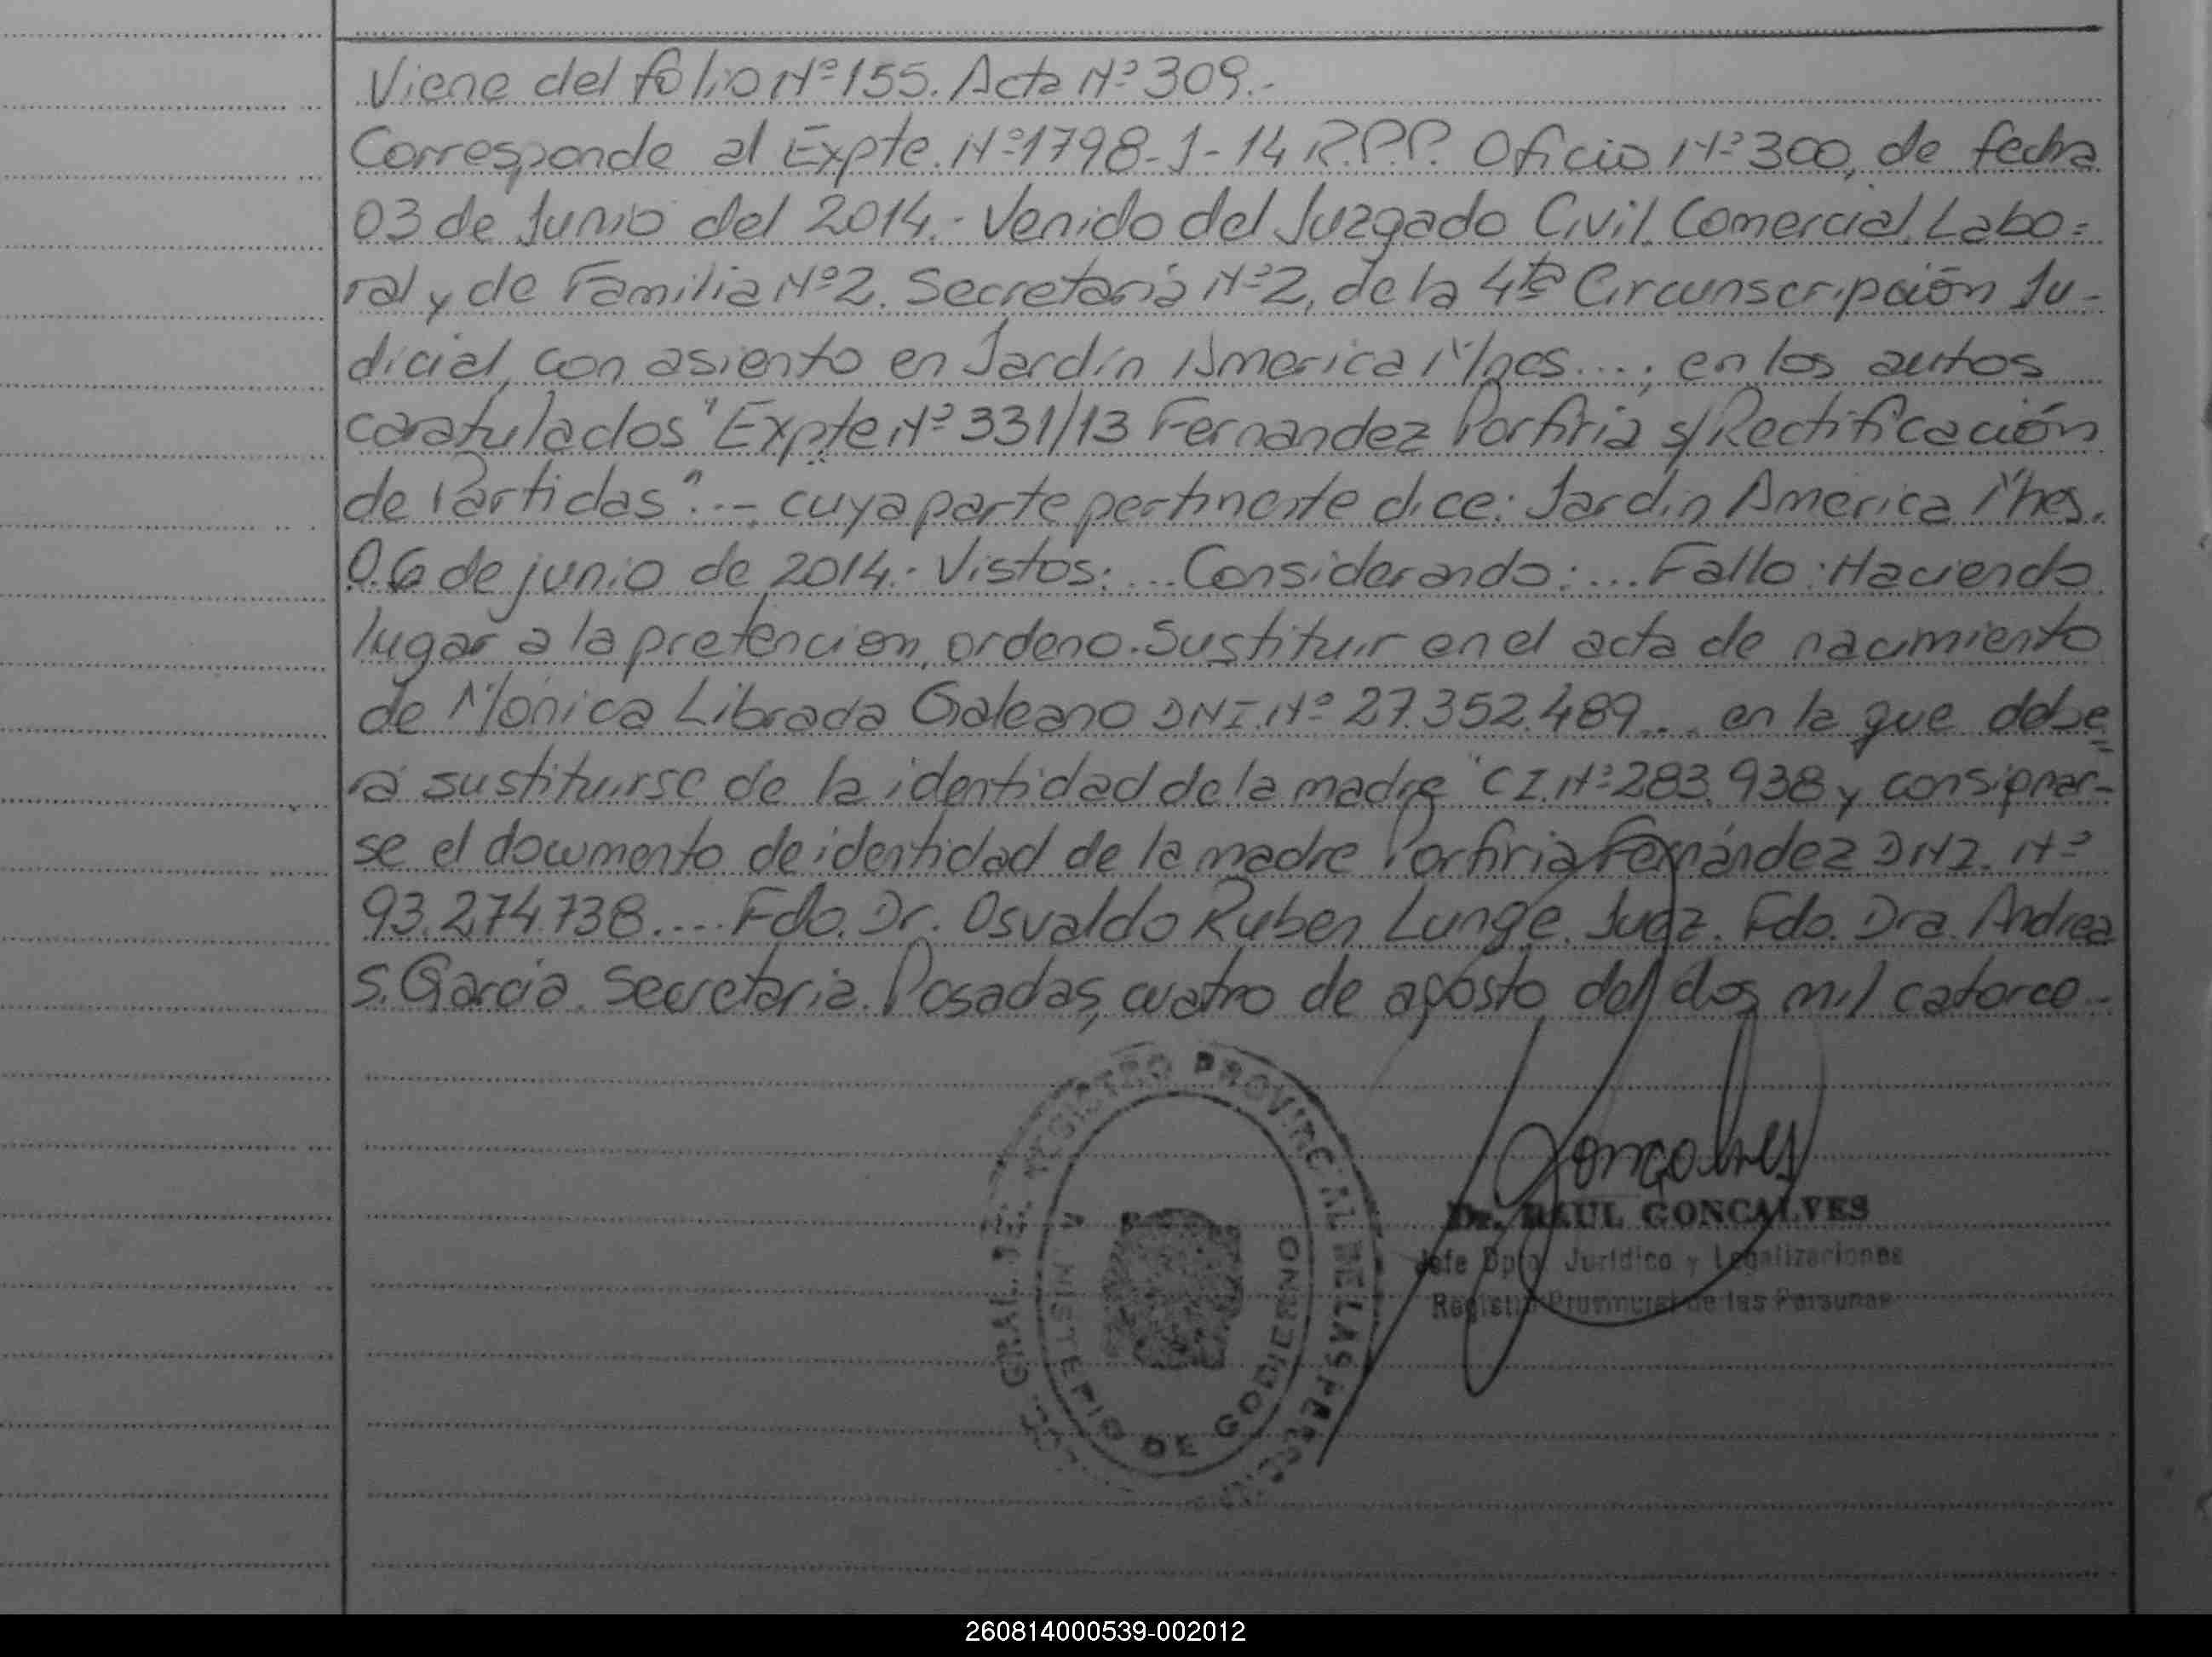 Viene del folio Nº 155. Acta Nº 309.-
Corresponde al Expte. Nº 1798-J-14 R.P.P. Oficio Nº 300, de fecha
03 de Junio del 2014.- Venido del Juzgado Civil, Comercial, Labo=
ral y de Familia Nº 2. Secretaría Nº 2, de la 4ta Circunscripción Ju-
dicial, con asiento en Jardín America Mnes....; en los autos
caratulados "Expte Nº 331/13 Fernandez Porfiria s/Rectificación
de Partidas".-- cuya parte pertinente dice: Jardin America Mnes.
06 de junio de 2014.- Vistos:... Considerando:... Fallo: Haciendo
lugar a la pretencion, ordeno. Sustituir en el acta de nacimiento
de Mónica Librada Galeano DNI. Nº 27.352.489... en la que debe=
rá sustituirse de la identidad de la madre "CI. Nº 283.938 y consignar-
se el documento de identidad de la madre Porfiria Fernández DNI. Nº
93.274.738.... Fdo. Dr. Osvaldo Ruben Lunge. Juez. Fdo. Dra. Andrea
S. Garcia. Secretaria. Posadas, cuatro de agosto del dos mil catorce.-
GRAL. DEL REGISTRO PROVINCIAL DE LAS PERSONAS
MINISTERIO DE GOBIERNO
Goncalves
Dr. RAUL GONCALVES
Jefe Dpto. Jurídico y Legalizaciones
Registro Provincial de las Personas
260814000539-002012